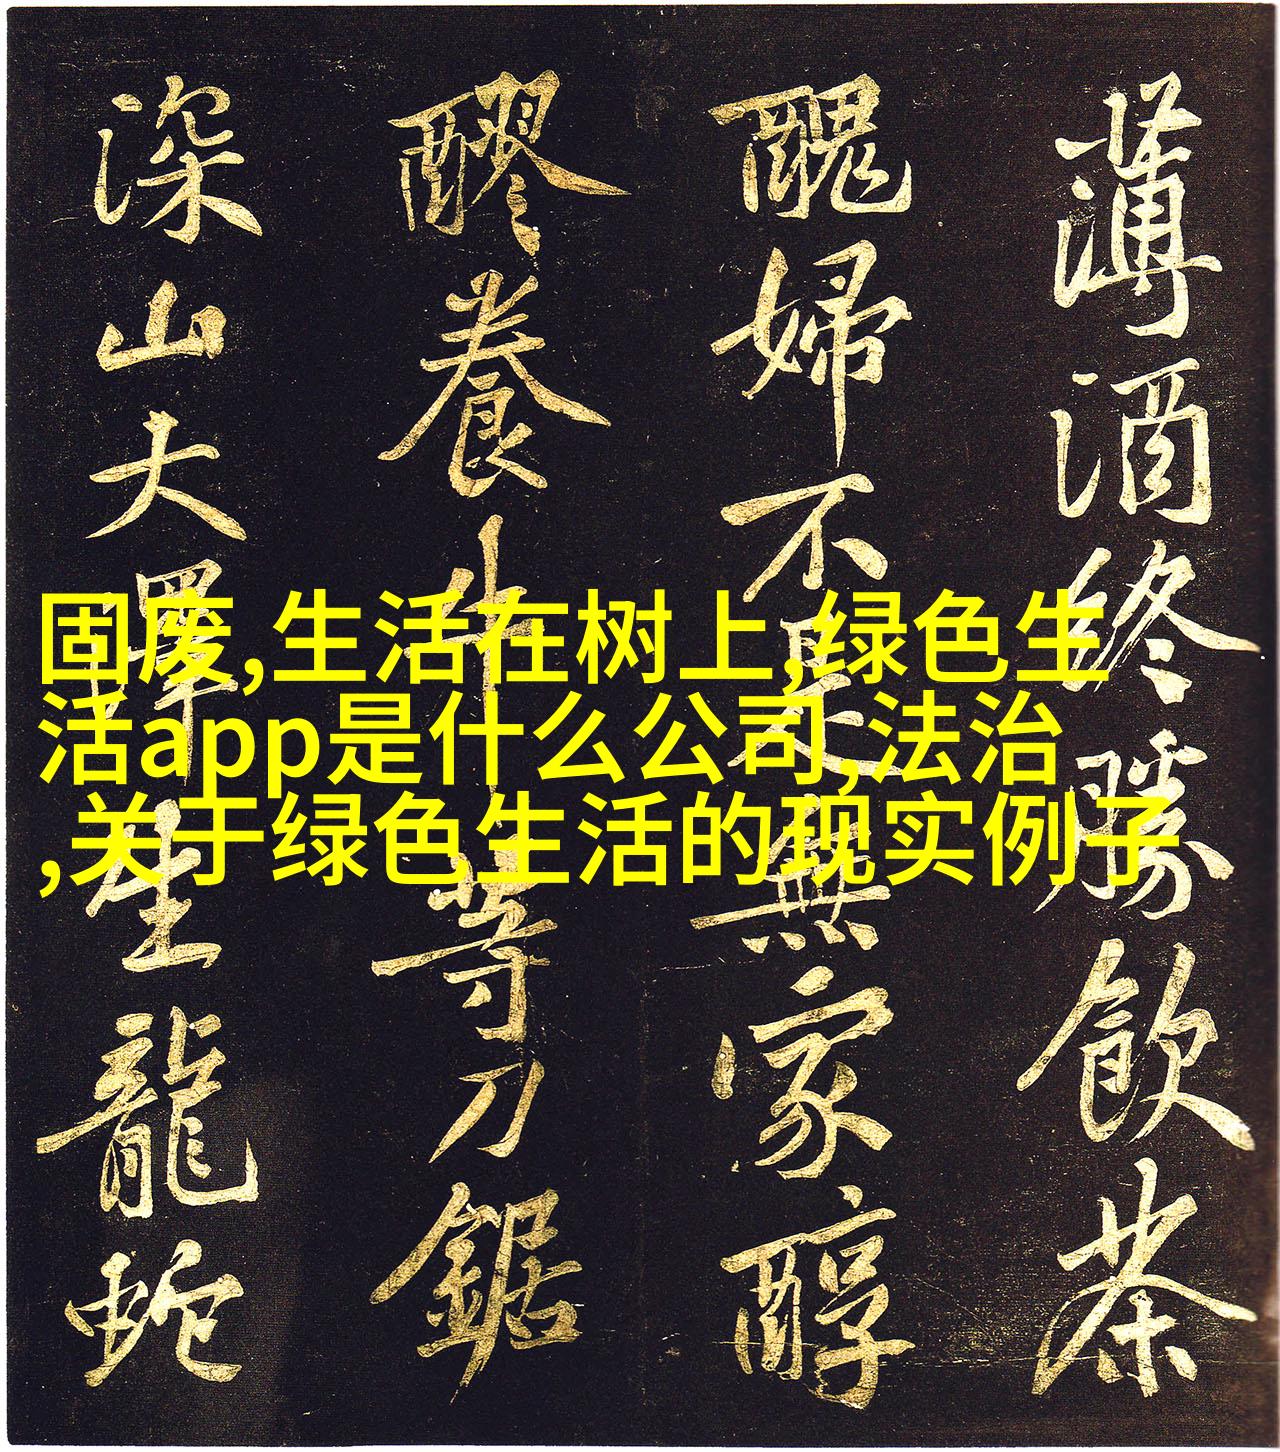 薄酒終勝飲茶
醜婦不是無家醇
醪養牛等刀鋸
深山大澤生龍蛇
固废,生活在树上,绿色生
活app是什么公司,法治
,关于绿色生活的现实例子